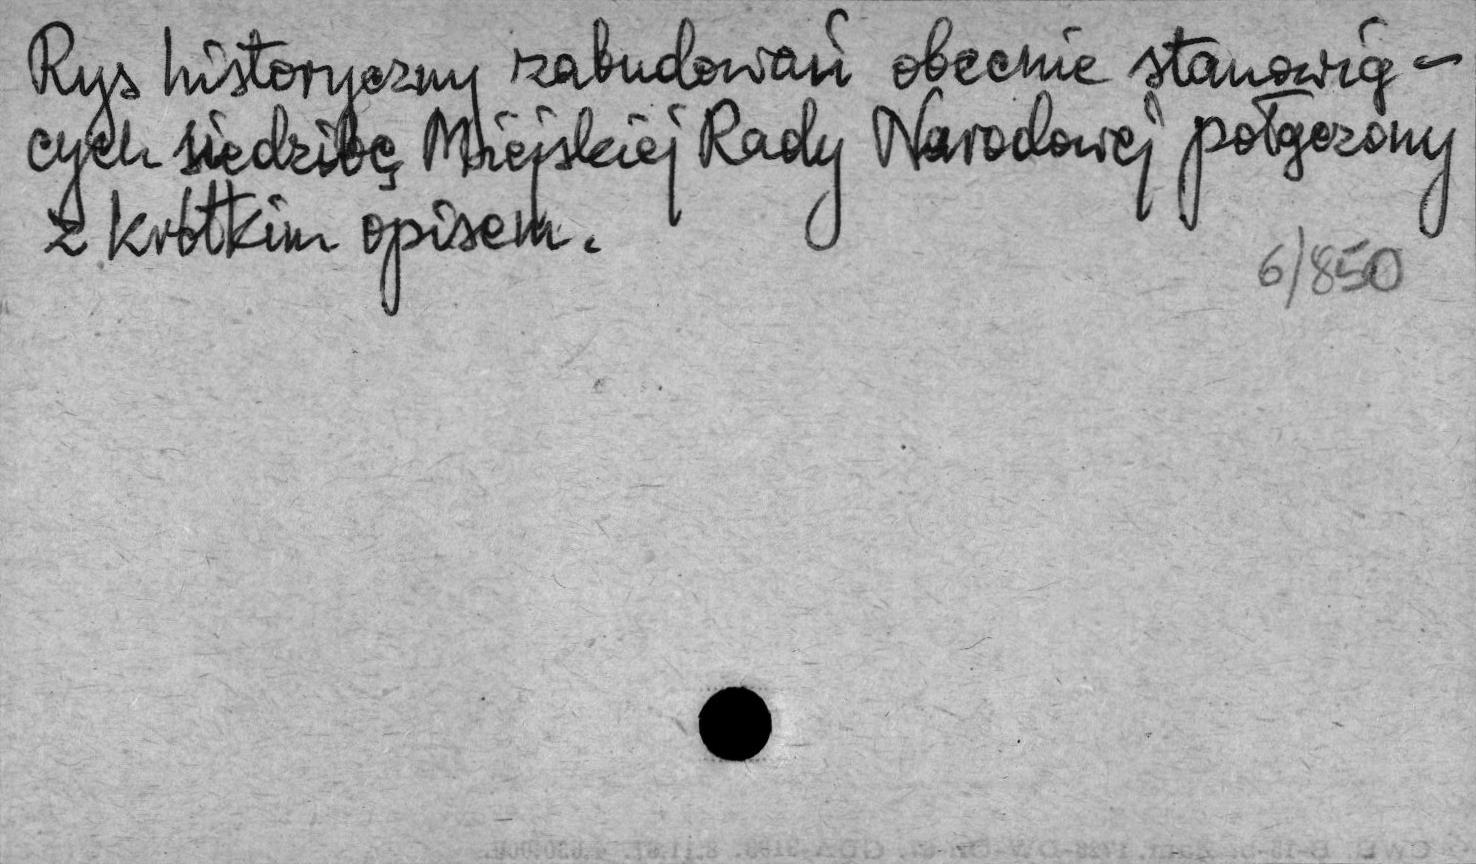 Rys historyczny zabudowań obecnie stanowią-
cych siedzibę Miejskiej Rady Narodowej połączony
z krótkim opisem.
6/850